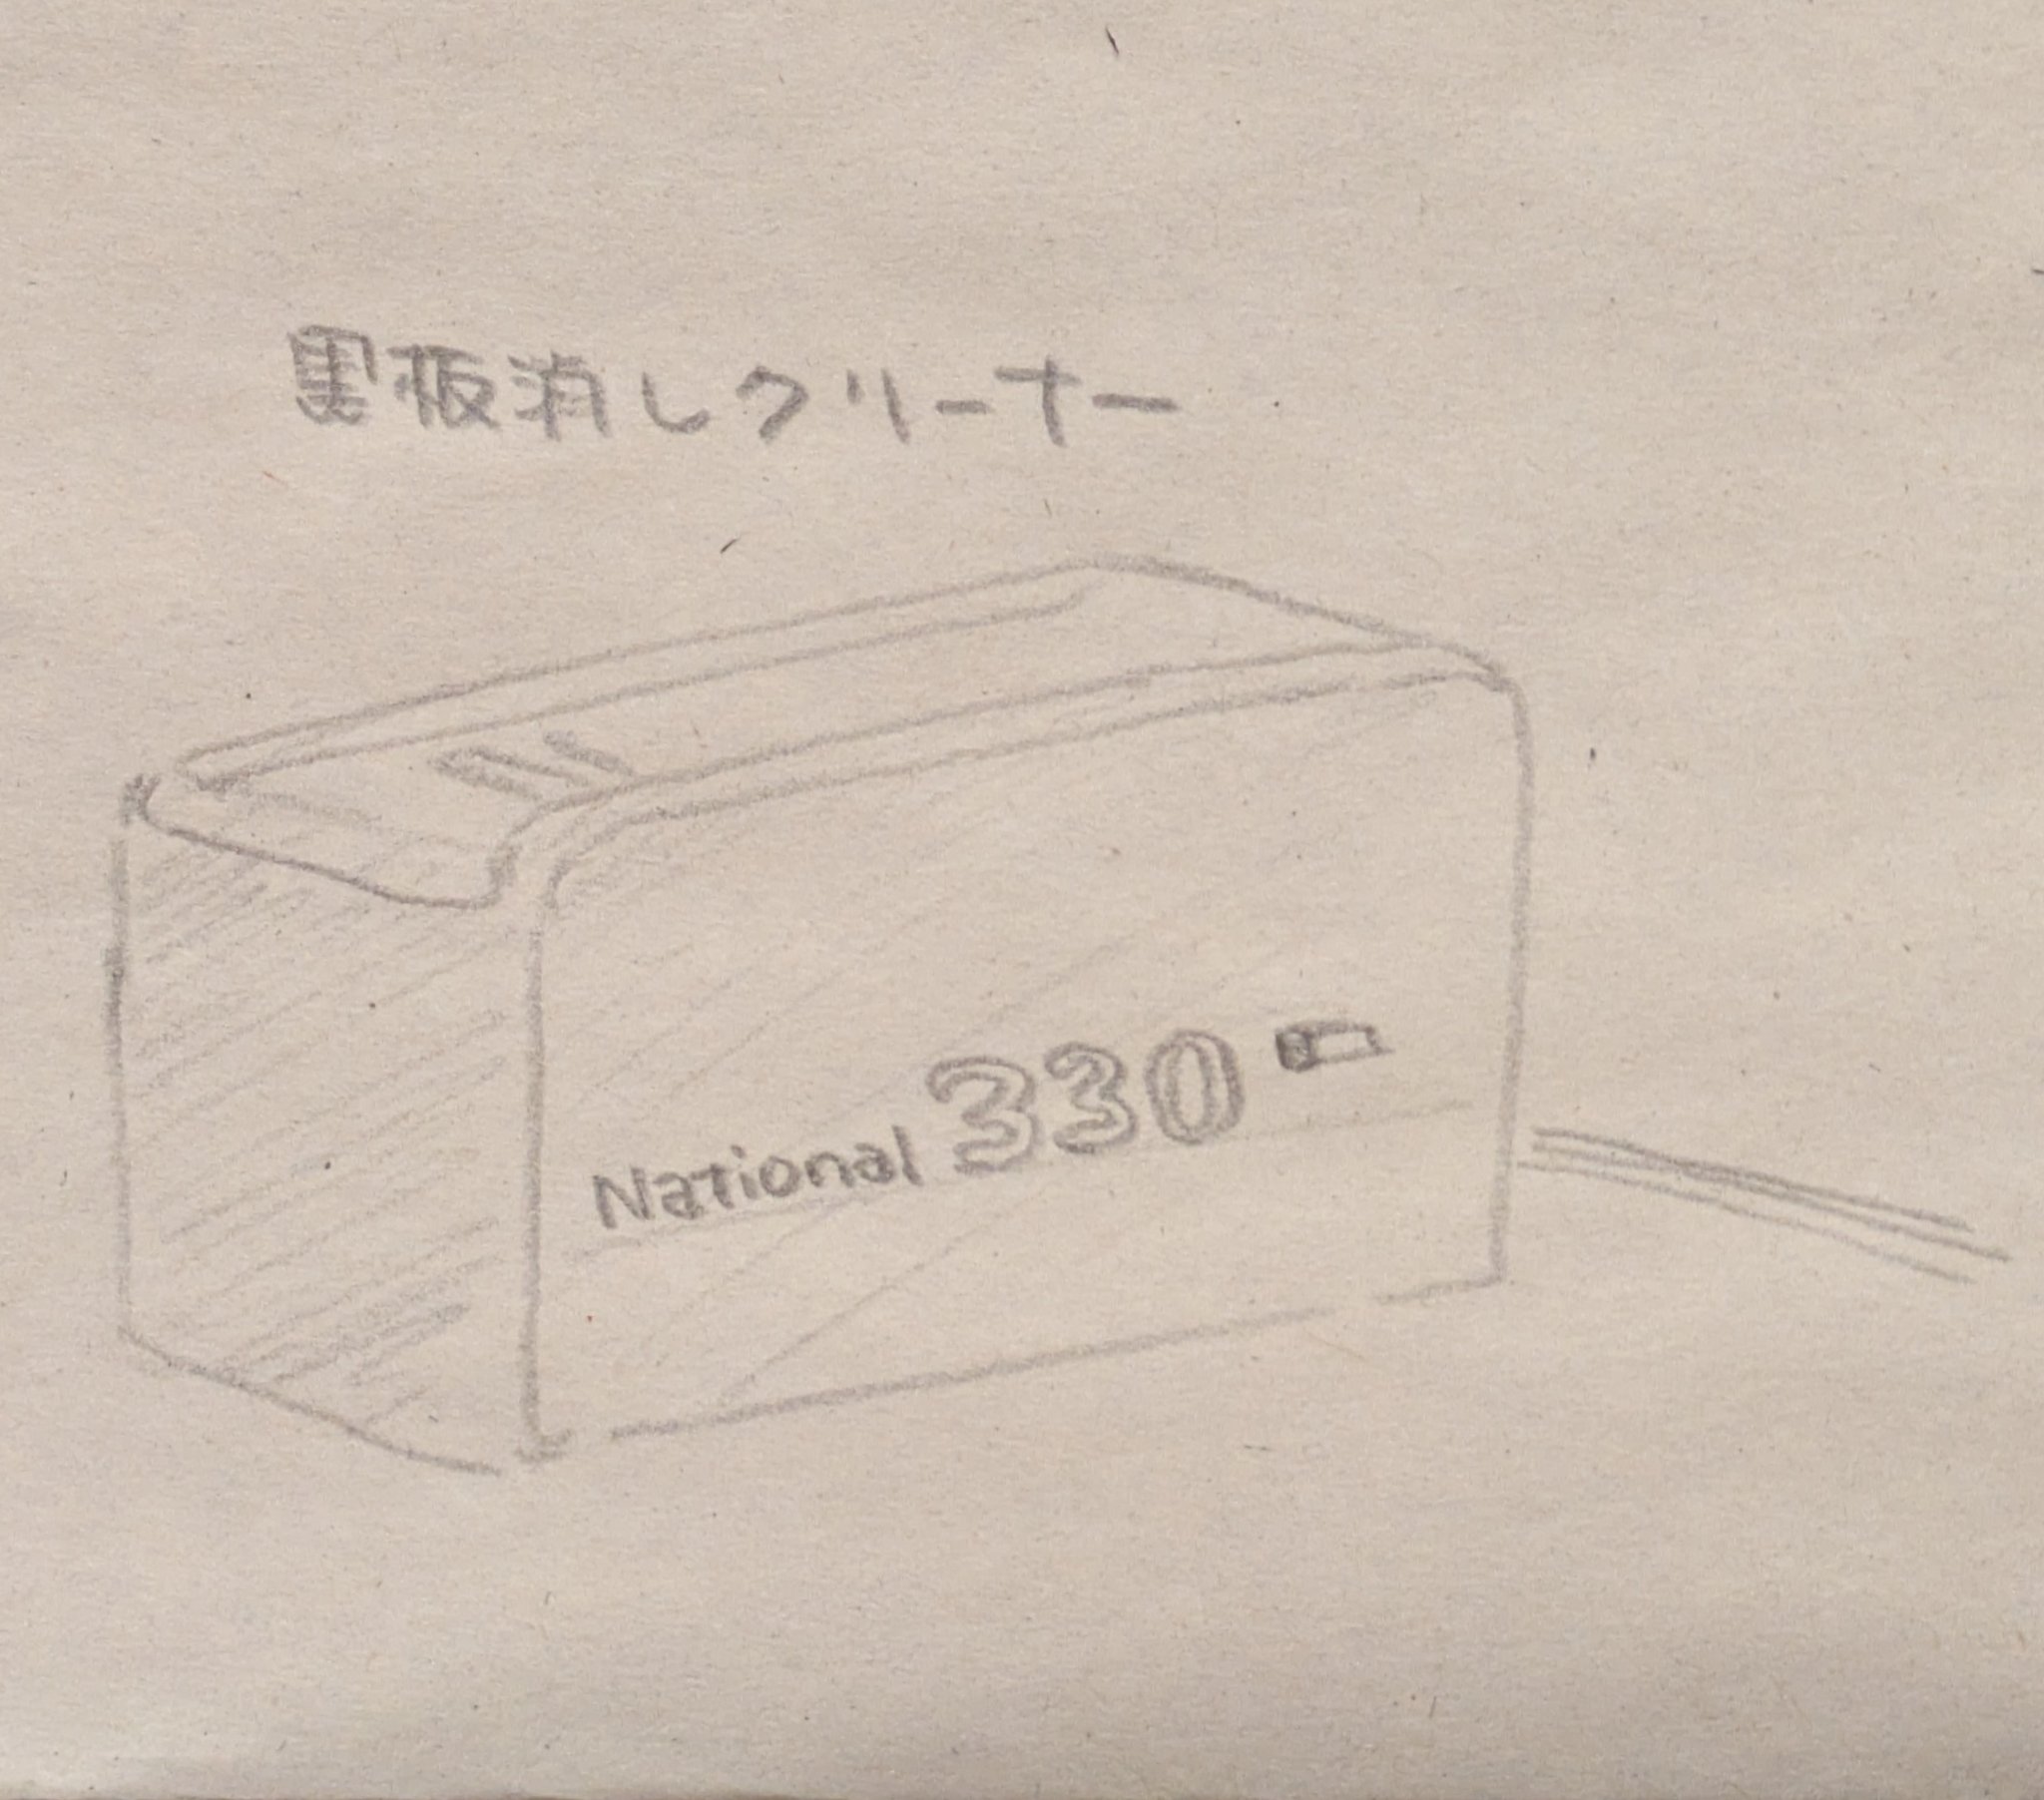 黒板消しクリーナー
National 330